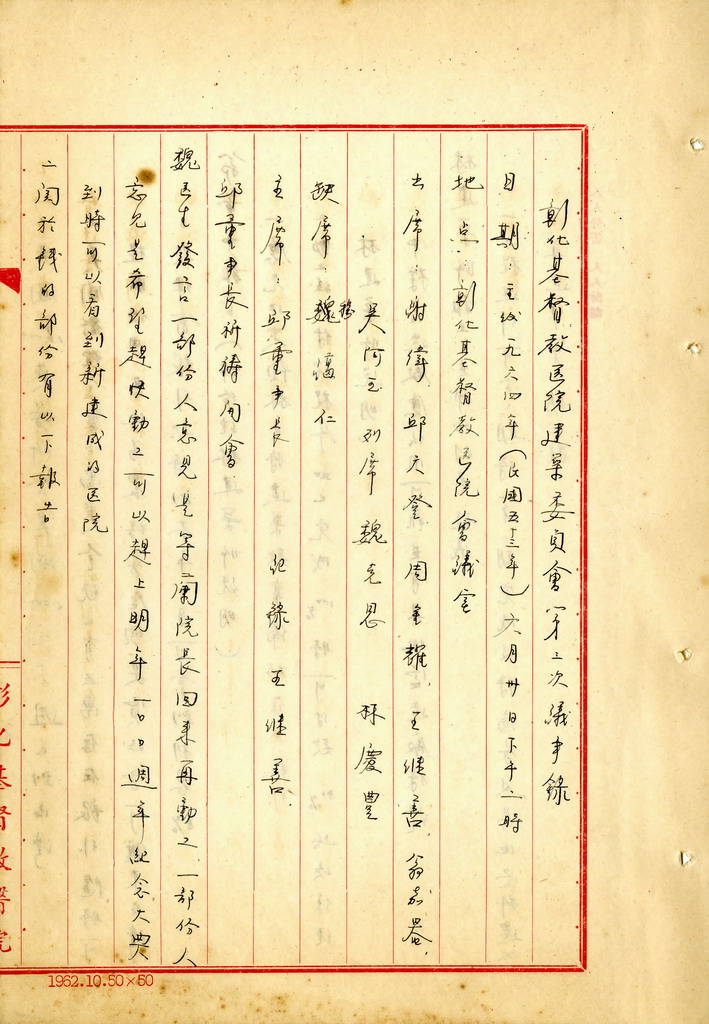 彰化基督教医院建筑委員會第三次議事錄
日期：主後一九六四年（民國五十三年）六月卅日下午二時
地点：彰化基督教医院會議室
出席：謝緯、邱大登、周金耀、王继善、翁嘉器、
吳阿玉 列席 魏克恩 林慶豐
缺席：魏福仁
主席：邱董事長 紀錄 王继善.
邱董事長祈禱開會
魏医生發言一部份人意見是等蘭院長回來再動工、一部份人
意見是希望趕快動工可以趕上明年一百週年紀念大典
到時可以看到新建成的医院
二関於錢的部份有以下報告
彰化基督教醫院
1962.10.50×50